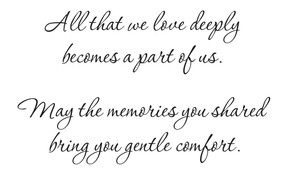 All that we love deeply
becomes a part of us.
May the memories you shared
bring you gentle comfort.